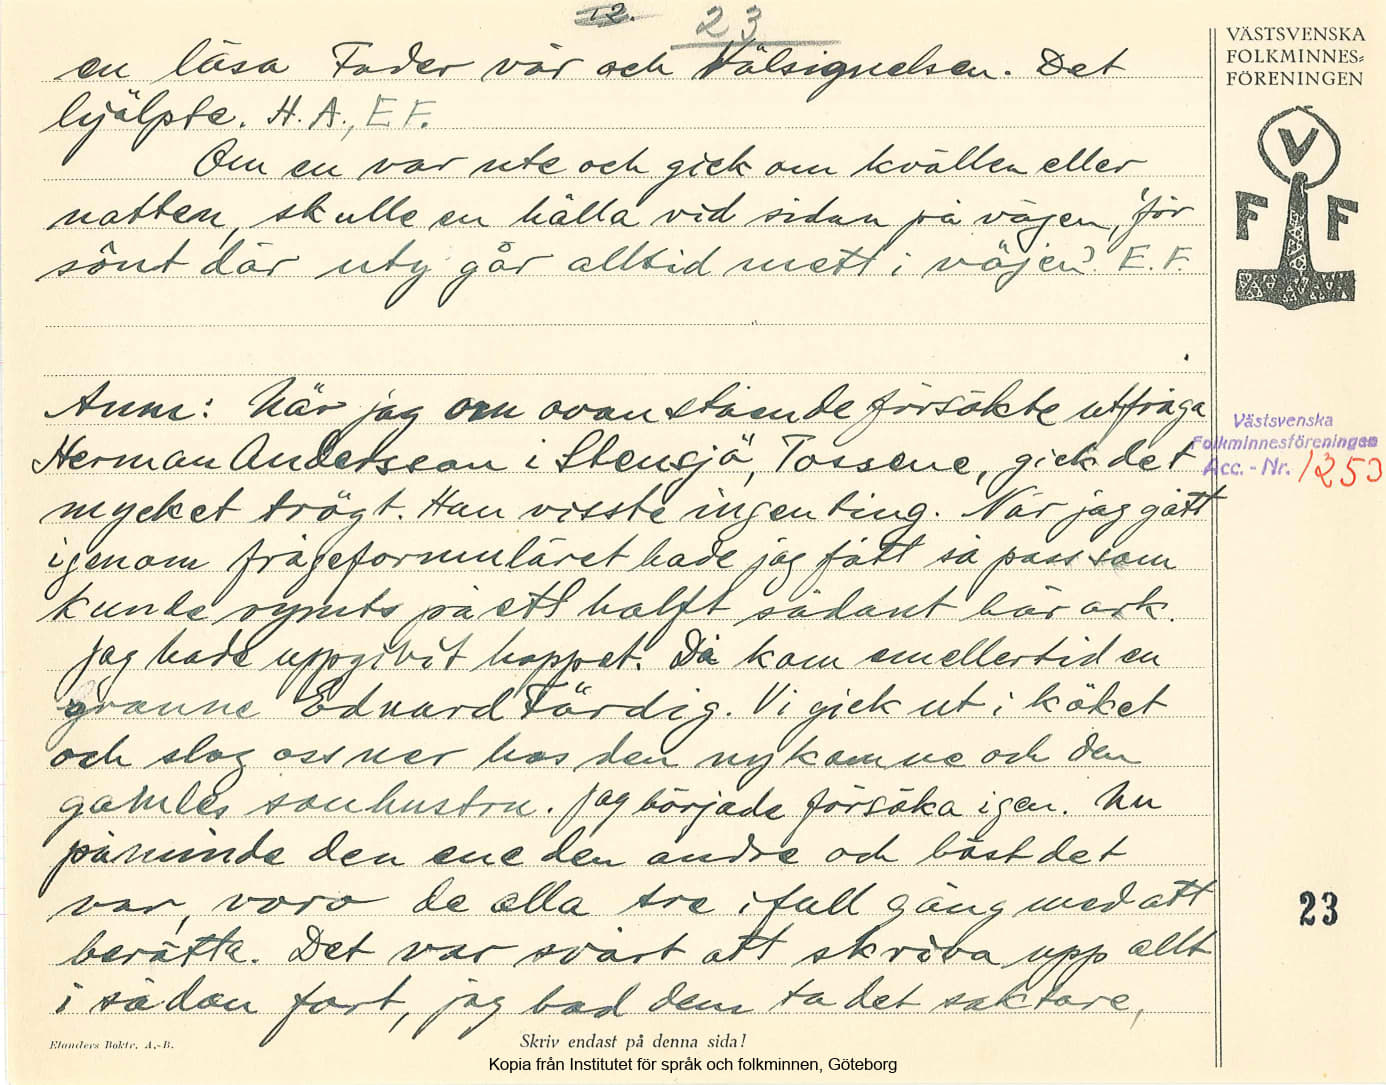 12.
23
VÄSTSVENSKA
FOLKMINNES=
FÖRENINGEN
V
F F
en läsa Fader vår och Välsignelsen. Det
hjälpte. H. A., E F.
Om en var ute och gick om kvällen eller
natten, skulle en hålla vid sidan på vägen, "för
sônt där uty går alltid mett i väjen". E. F.
Anm: När jag om ovanstående försökte utfråga
Herman Andersson i Stensjö, Tossene, gick det
mycket trögt. Han visste ingenting. När jag gått
igenom frågeformuläret hade jag fått så pass som
kunde rymts på ett halft sådant här ark.
Jag hade uppgivit hoppet. Då kom emellertid en
granne Edvard Färdig. Vi gick ut i köket
och slog oss ner hos den nykomne och den
gamles sonhustru. Jag började försöka igen. Nu
påminde den ene den andre och bäst det
var, voro de alla tre i full gång med att
berätta. Det var svårt att skriva upp allt
i sådan fart, jag bad dem ta det saktare,
Västsvenska
Folkminnesföreningen
Acc. - Nr. 1253
23
Elanders Boktr. A.-B.
Skriv endast på denna sida!
Kopia från Institutet för språk och folkminnen, Göteborg